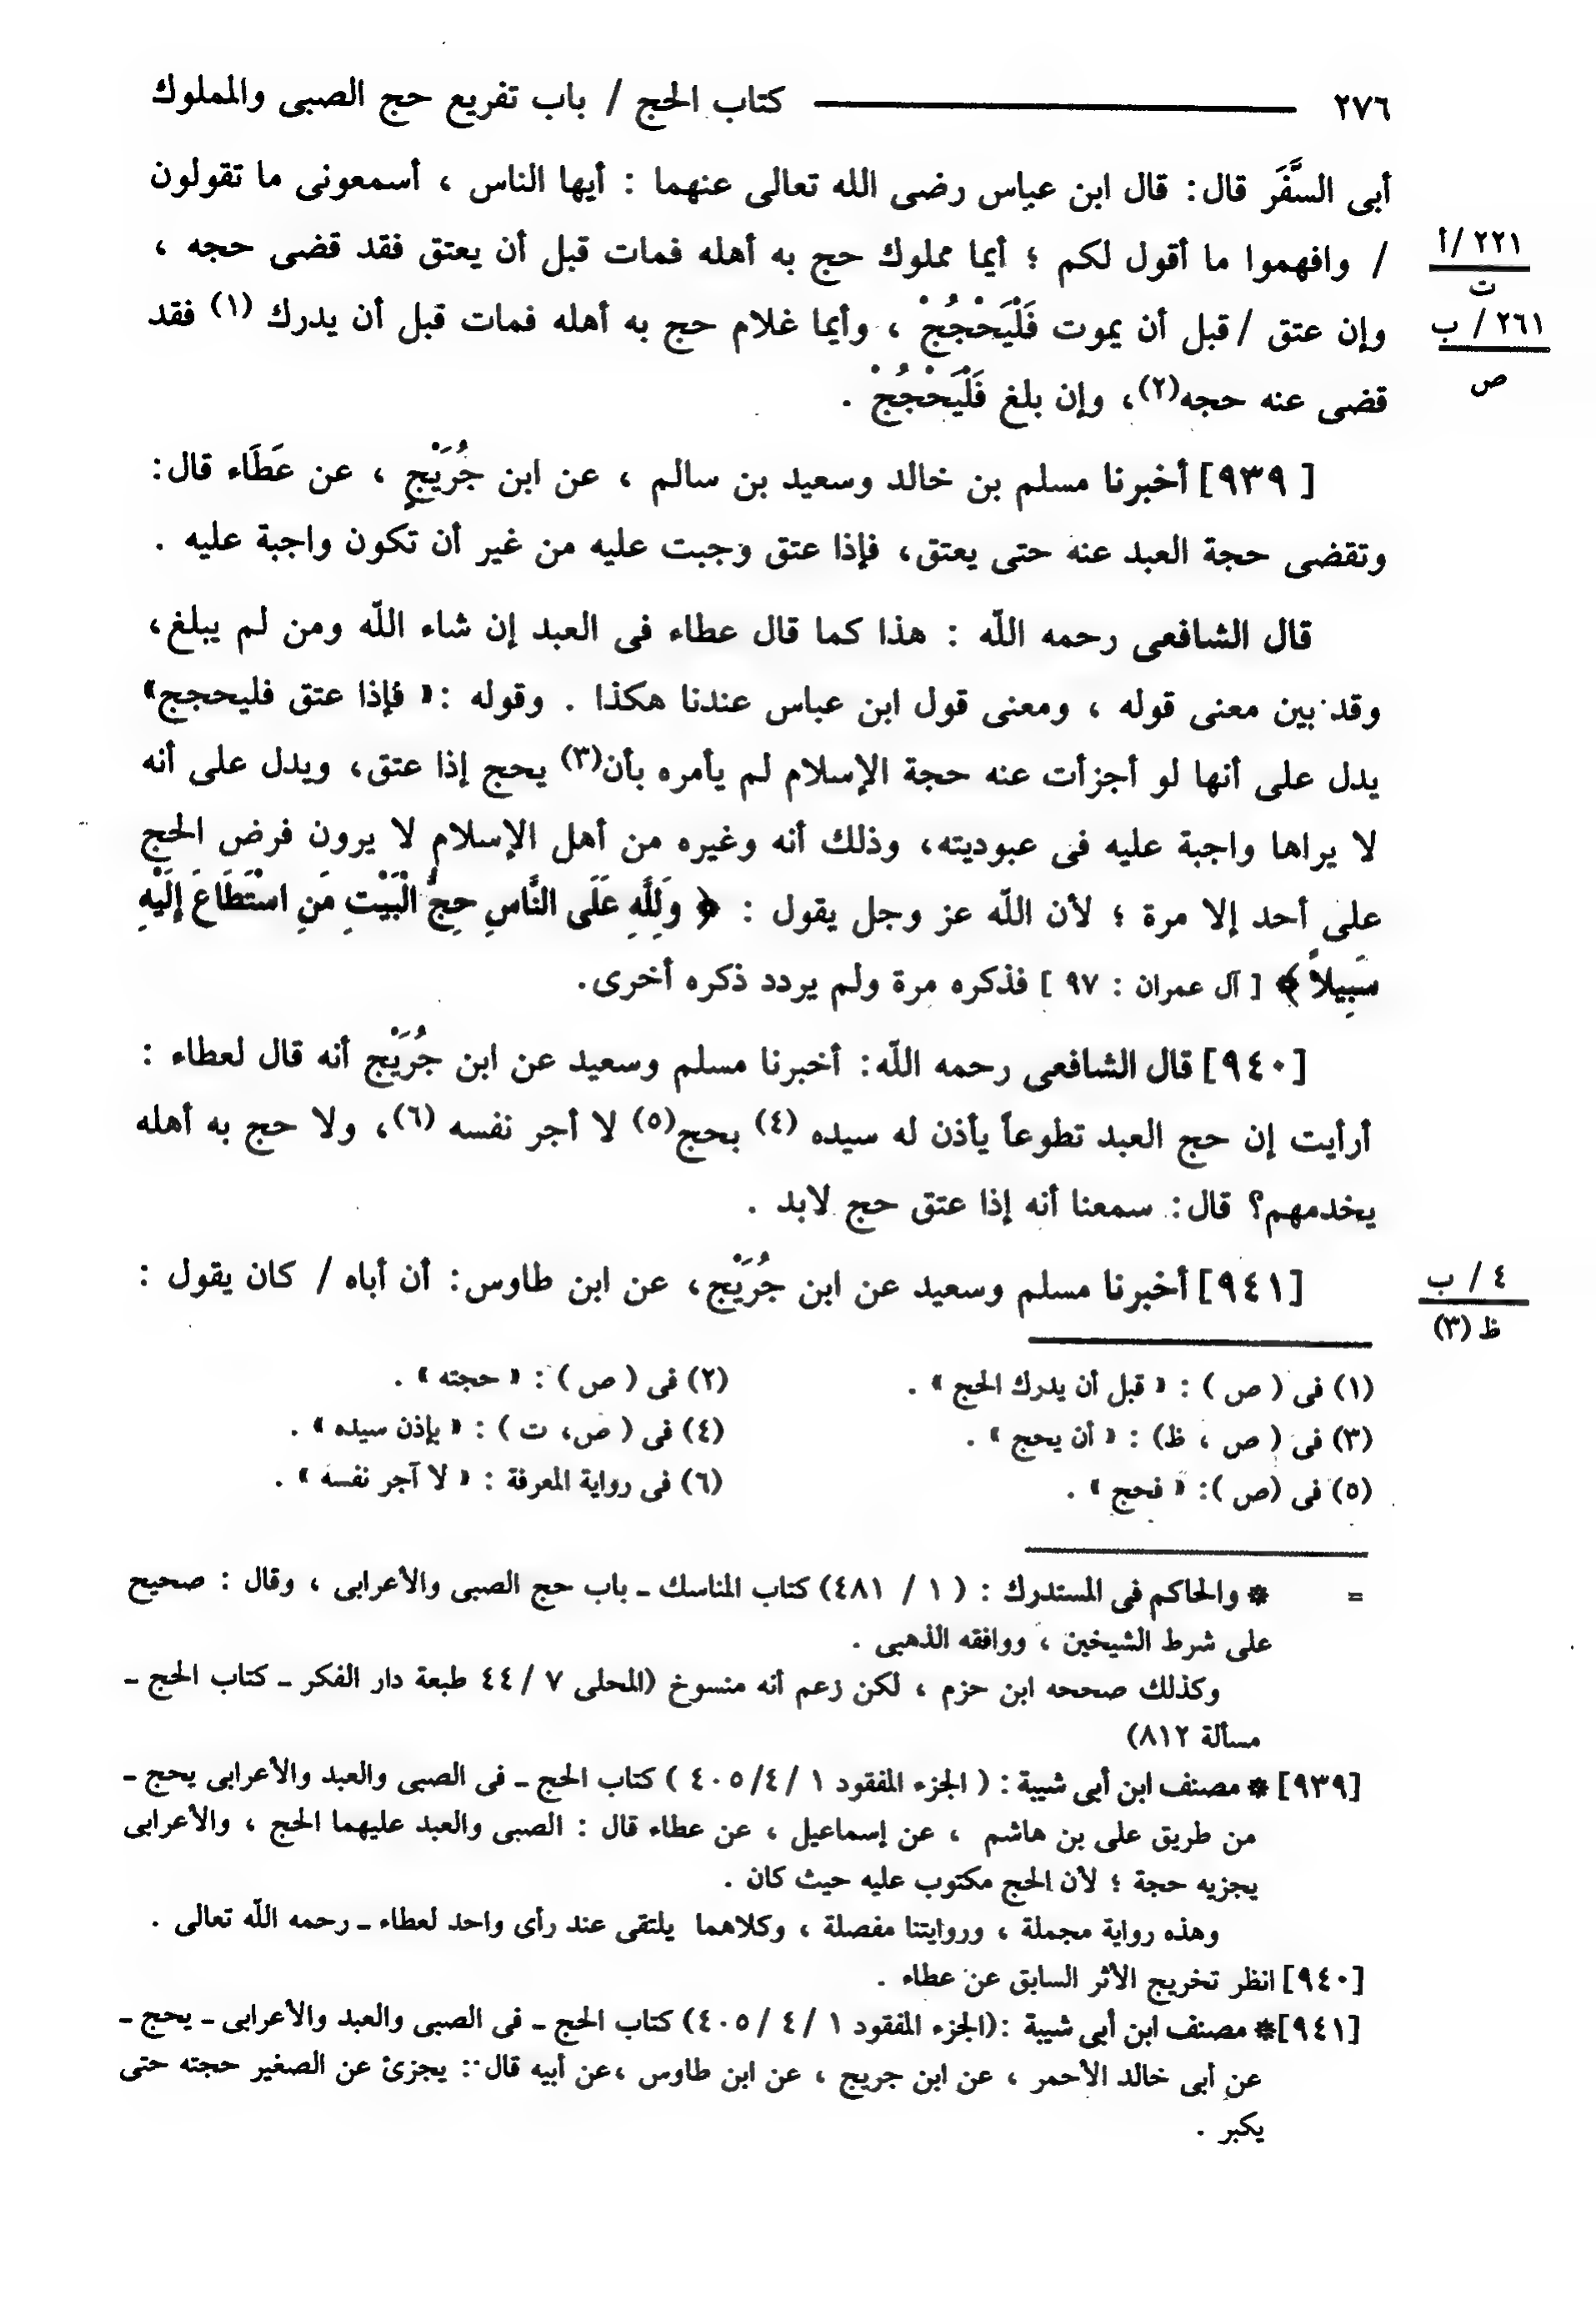 ٢٧٦ كتاب الحج / باب تفريع حج الصبى والمملوك
أبى السَّفَر قال: قال ابن عباس رضى الله تعالى عنهما : أيها الناس ، أسمعونى ما تقولون
/ وافهموا ما أقول لكم ؛ أيما مملوك حج به أهله فمات قبل أن يعتق فقد قضى حجه ،
٢٢١ /أ
ت
وإن عتق / قبل أن يموت فَلْيَحْجُجْ ، وأيما غلام حج به أهله فمات قبل أن يدرك (١) فقد
٢٦١ / ب
ص
قضى عنه حجه(٢)، وإن بلغ فَلْيَحْجُجْ .
[ ٩٣٩] أخبرنا مسلم بن خالد وسعيد بن سالم ، عن ابن جُرَيْجٍ ، عن عَطَاء قال:
وتقضى حجة العبد عنه حتى يعتق، فإذا عتق وجبت عليه من غير أن تكون واجبة عليه .
قال الشافعى رحمه اللّه : هذا كما قال عطاء فى العبد إن شاء اللّه ومن لم يبلغ،
وقد بين معنى قوله ، ومعنى قول ابن عباس عندنا هكذا . وقوله :« فإذا عتق فليحجج»
يدل على أنها لو أجزأت عنه حجة الإسلام لم يأمره بأن(٣) يحج إذا عتق، ويدل على أنه
لا يراها واجبة عليه فى عبوديته، وذلك أنه وغيره من أهل الإسلام لا يرون فرض الحج
على أحد إلا مرة ؛ لأن اللّه عز وجل يقول : ﴿ وَلِلَّهِ عَلَى النَّاسِ حِجُّ الْبَيْتِ مَنِ اسْتَطَاعَ إِلَيْهِ
سَبِيلاً ﴾ [ آل عمران : ٩٧ ] فذكره مرة ولم يردد ذكره أخرى.
[٩٤٠] قال الشافعى رحمه اللّه: أخبرنا مسلم وسعيد عن ابن جُرَيْج أنه قال لعطاء :
أرأيت إن حج العبد تطوعاً يأذن له سيده (٤) بحج(٥) لا أجر نفسه (٦)، ولا حج به أهله
يخدمهم؟ قال: سمعنا أنه إذا عتق حج لابد .
[٩٤١] أخبرنا مسلم وسعيد عن ابن جُرَيْج، عن ابن طاوس: أن أباه / كان يقول :
٤ / ب
ظ (٣)
(١) فى ( ص ) : « قبل أن يدرك الحج » . (٢) فى ( ص ) : « حجته » .
(٣) فى ( ص ، ظ) : « أن يحج » . (٤) فى ( ص، ت ) : « بإذن سيده » .
(٥) فى (ص ): « فحج » . (٦) فى رواية المعرفة : « لا آجر نفسه » .
= * والحاكم فى المستدرك : ( ١ / ٤٨١) كتاب المناسك ـ باب حج الصبى والأعرابى ، وقال : صحيح
على شرط الشيخين ، ووافقه الذهبى .
وكذلك صححه ابن حزم ، لكن زعم أنه منسوخ (المحلى ٧ / ٤٤ طبعة دار الفكر ـ كتاب الحج ـ
مسألة ٨١٢)
[٩٣٩] * مصنف ابن أبى شيبة : ( الجزء المفقود ١ /٤٠٥/٤ ) كتاب الحج ـ فى الصبى والعبد والأعرابى يحج ـ
من طريق على بن هاشم ، عن إسماعيل ، عن عطاء قال : الصبى والعبد عليهما الحج ، والأعرابى
يجزيه حجة ؛ لأن الحج مكتوب عليه حيث كان .
وهذه رواية مجملة ، وروايتنا مفصلة ، وكلاهما يلتقى عند رأى واحد لعطاء ـ رحمه اللّه تعالى .
[٩٤٠] انظر تخريج الأثر السابق عن عطاء .
[٩٤١]* مصنف ابن أبى شيبة :(الجزء المفقود ١ / ٤ / ٤٠٥) كتاب الحج ـ فى الصبى والعبد والأعرابى ـ يحج ـ
عن أبى خالد الأحمر ، عن ابن جريج ، عن ابن طاوس ،عن أبيه قال : يجزئ عن الصغير حجته حتى
يكبر .